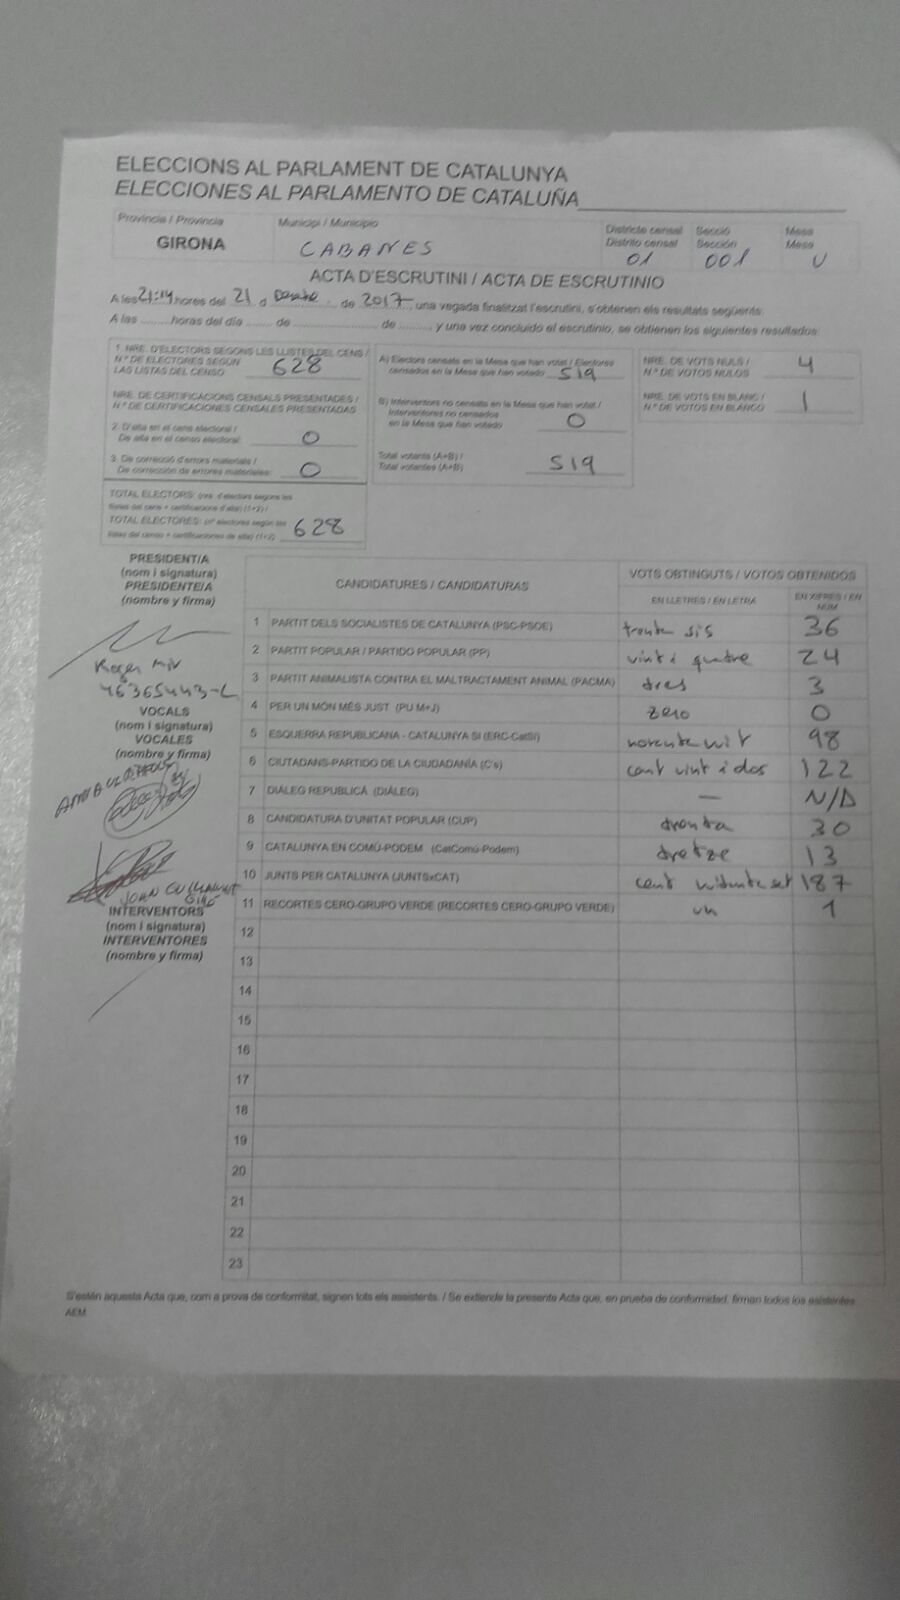 ELECCIONS AL PARLAMENT DE CATALUNYA
ELECCIONES AL PARLAMENTO DE CATALUÑA
Província / Provincia
GIRONA
Municipi / Municipio
CABANES
Districte censal
Distrito censal
01
Secció
Sección
001
Mesa
Mesa
U
ACTA D'ESCRUTINI / ACTA DE ESCRUTINIO
A les 21:14 hores del 21 d de 2017, una vegada finalitzat l'escrutini, s'obtenen els resultats següents:
A las ........horas del día ....... de .................... de ........ y una vez concluido el escrutinio, se obtienen los siguientes resultados:
1. NRE. D'ELECTORS SEGONS LES LLISTES DEL CENS /
N.º DE ELECTORES SEGÚN
LAS LISTAS DEL CENSO 628
NRE. DE CERTIFICACIONS CENSALS PRESENTADES /
N.º DE CERTIFICACIONES CENSALES PRESENTADAS
2. D'alta en el cens electoral /
De alta en el censo electoral: 0
3. De correcció d'errors materials /
De corrección de errores materiales: 0
TOTAL ELECTORS: (nre. d'electors segons les
llistes del cens + certificacions d'alta) (1+2) /
TOTAL ELECTORES: (nº electores según las
listas del censo + certificaciones de alta) (1+2) 628
A) Electors censats en la Mesa que han votat / Electores
censados en la Mesa que han votado 519
B) Interventors no censats en la Mesa que han votat /
Interventores no censados
en la Mesa que han votado 0
Total votants (A+B) /
Total votantes (A+B) 519
NRE. DE VOTS NULS /
N.º DE VOTOS NULOS 4
NRE. DE VOTS EN BLANC /
N.º DE VOTOS EN BLANCO 1
PRESIDENT/A
(nom i signatura)
PRESIDENTE/A
(nombre y firma)
Roger
46365443-L
VOCALS
(nom i signatura)
VOCALES
(nombre y firma)
JOAN
INTERVENTORS
(nom i signatura)
INTERVENTORES
(nombre y firma)
CANDIDATURES / CANDIDATURAS
VOTS OBTINGUTS / VOTOS OBTENIDOS
EN LLETRES / EN LETRA
EN XIFRES / EN NUM
1 PARTIT DELS SOCIALISTES DE CATALUNYA (PSC-PSOE) trenta sis 36
2 PARTIT POPULAR / PARTIDO POPULAR (PP) vint i quatre 24
3 PARTIT ANIMALISTA CONTRA EL MALTRACTAMENT ANIMAL (PACMA) tres 3
4 PER UN MÓN MÉS JUST (PU M+J) zero 0
5 ESQUERRA REPUBLICANA - CATALUNYA SÍ (ERC-CatSí) noranta vuit 98
6 CIUTADANS-PARTIDO DE LA CIUDADANÍA (C's) cent vint i dos 122
7 DIÀLEG REPUBLICÀ (DIÀLEG) — N/D
8 CANDIDATURA D'UNITAT POPULAR (CUP) trenta 30
9 CATALUNYA EN COMÚ-PODEM (CatComú-Podem) tretze 13
10 JUNTS PER CATALUNYA (JUNTSxCAT) cent vuitanta set 187
11 RECORTES CERO-GRUPO VERDE (RECORTES CERO-GRUPO VERDE) un 1
12
13
14
15
16
17
18
19
20
21
22
23
S'estén aquesta Acta que, com a prova de conformitat, signen tots els assistents. / Se extiende la presente Acta que, en prueba de conformidad, firman todos los asistentes
AEM